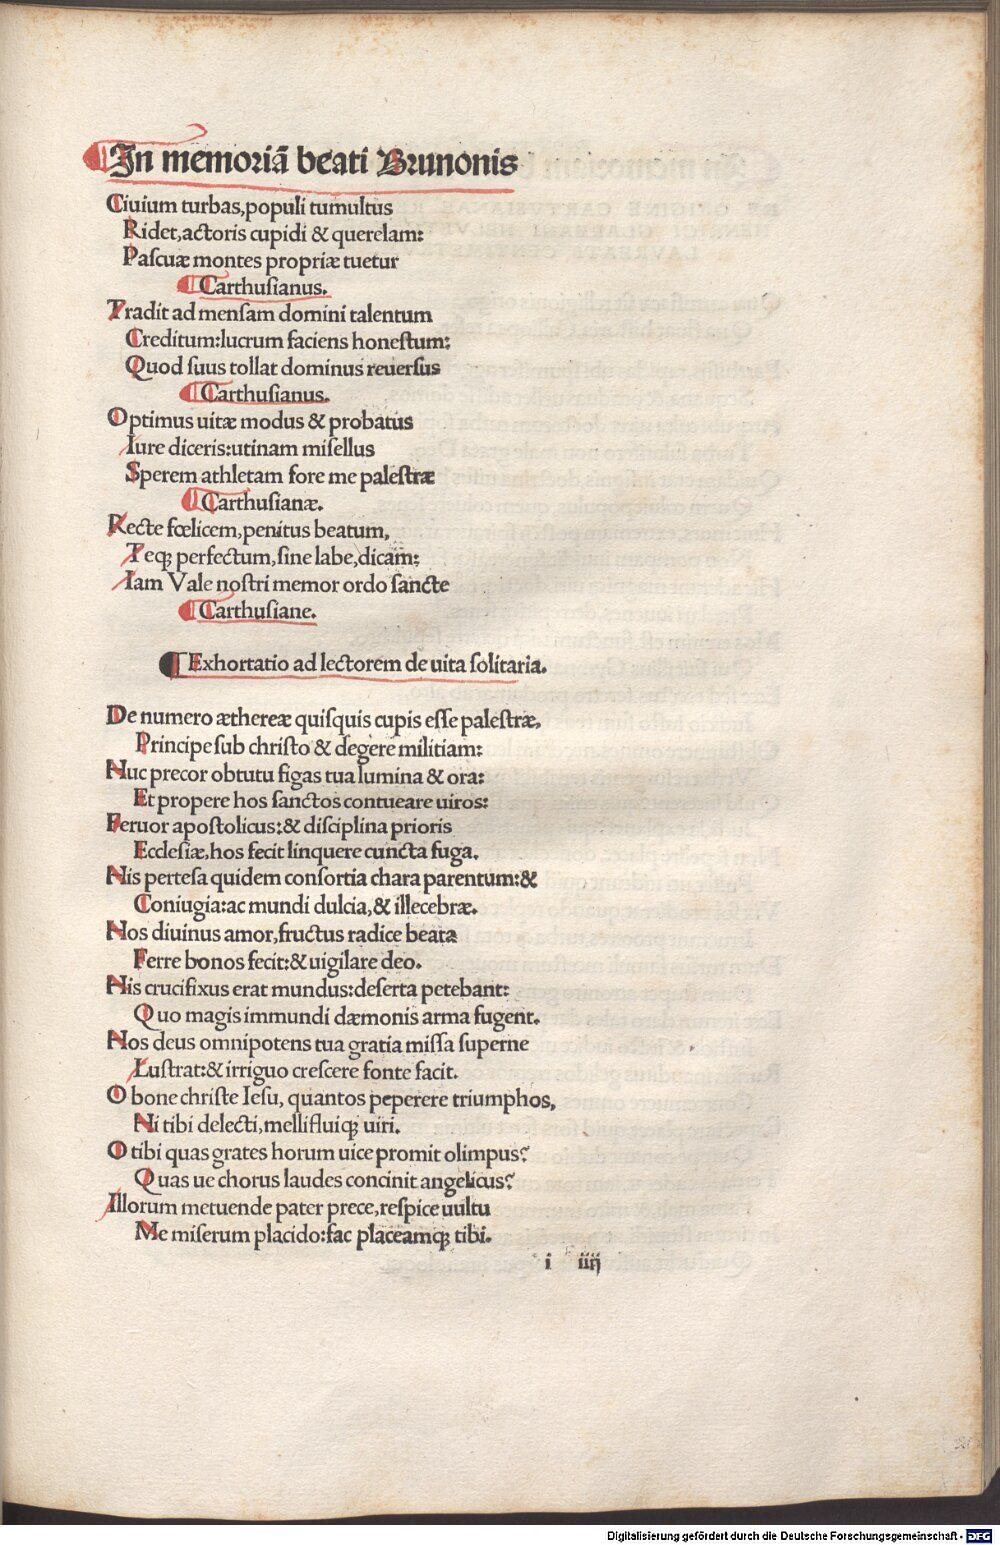 In memoriā beati Brunonis
Ciuium turbas,populi tumultus
Ridet,actoris cupidi & querelam:
Pascuæ montes propriæ tuetur
Carthusianus.
Tradit ad mensam domini talentum
Creditum:lucrum faciens honestum:
Quod suus tollat dominus reuersus
Carthusianus.
Optimus uitæ modus & probatus
Iure diceris:utinam misellus
Sperem athletam fore me palestræ
Carthusianæ.
Recte fœlicem,penitus beatum,
Teqꝫ perfectum,sine labe,dicam:
Iam Vale nostri memor ordo sancte
Carthusiane.
Exhortatio ad lectorem de uita solitaria.
De numero æthereæ quisquis cupis esse palestræ,
Principe sub christo & degere militiam:
Huc precor obtutu figas tua lumina & ora:
Et propere hos sanctos contueare uiros:
Feruor apostolicus:& disciplina prioris
Ecclesiæ,hos fecit linquere cuncta fuga.
His pertesa quidem consortia chara parentum:&
Coniugia:ac mundi dulcia,& illecebræ.
Hos diuinus amor,fructus radice beata
Ferre bonos fecit:& uigilare deo.
His crucifixus erat mundus:deserta petebant:
Quo magis immundi dæmonis arma fugent.
Hos deus omnipotens tua gratia missa superne
Lustrat:& irriguo crescere fonte facit.
O bone christe Iesu, quantos peperere triumphos,
Hi tibi delecti,mellifluiqꝫ uiri.
O tibi quas grates horum uice promit olimpus?
Quas ue chorus laudes concinit angelicus?
Illorum metuende pater prece,respice uultu
Me miserum placido:fac placeamqꝫ tibi.
i iiij
Digitalisierung gefördert durch die Deutsche Forschungsgemeinschaft - DFG